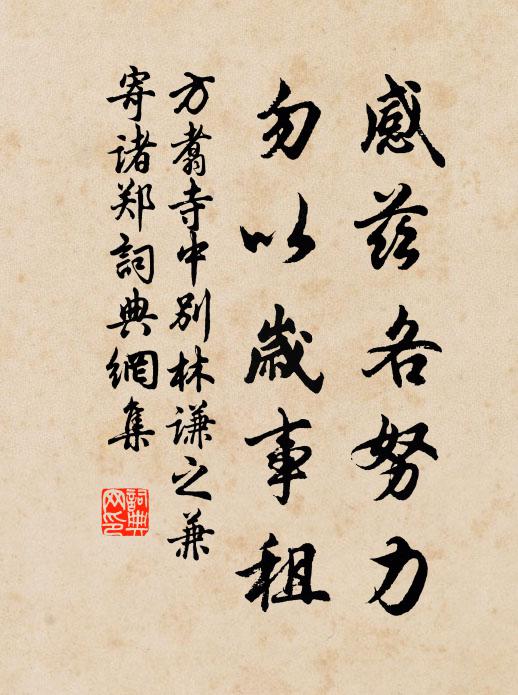 感兹各努力
勿以歲事租
方翥寺中别林謙之兼
寄诸郑詞典網集
詞典网印